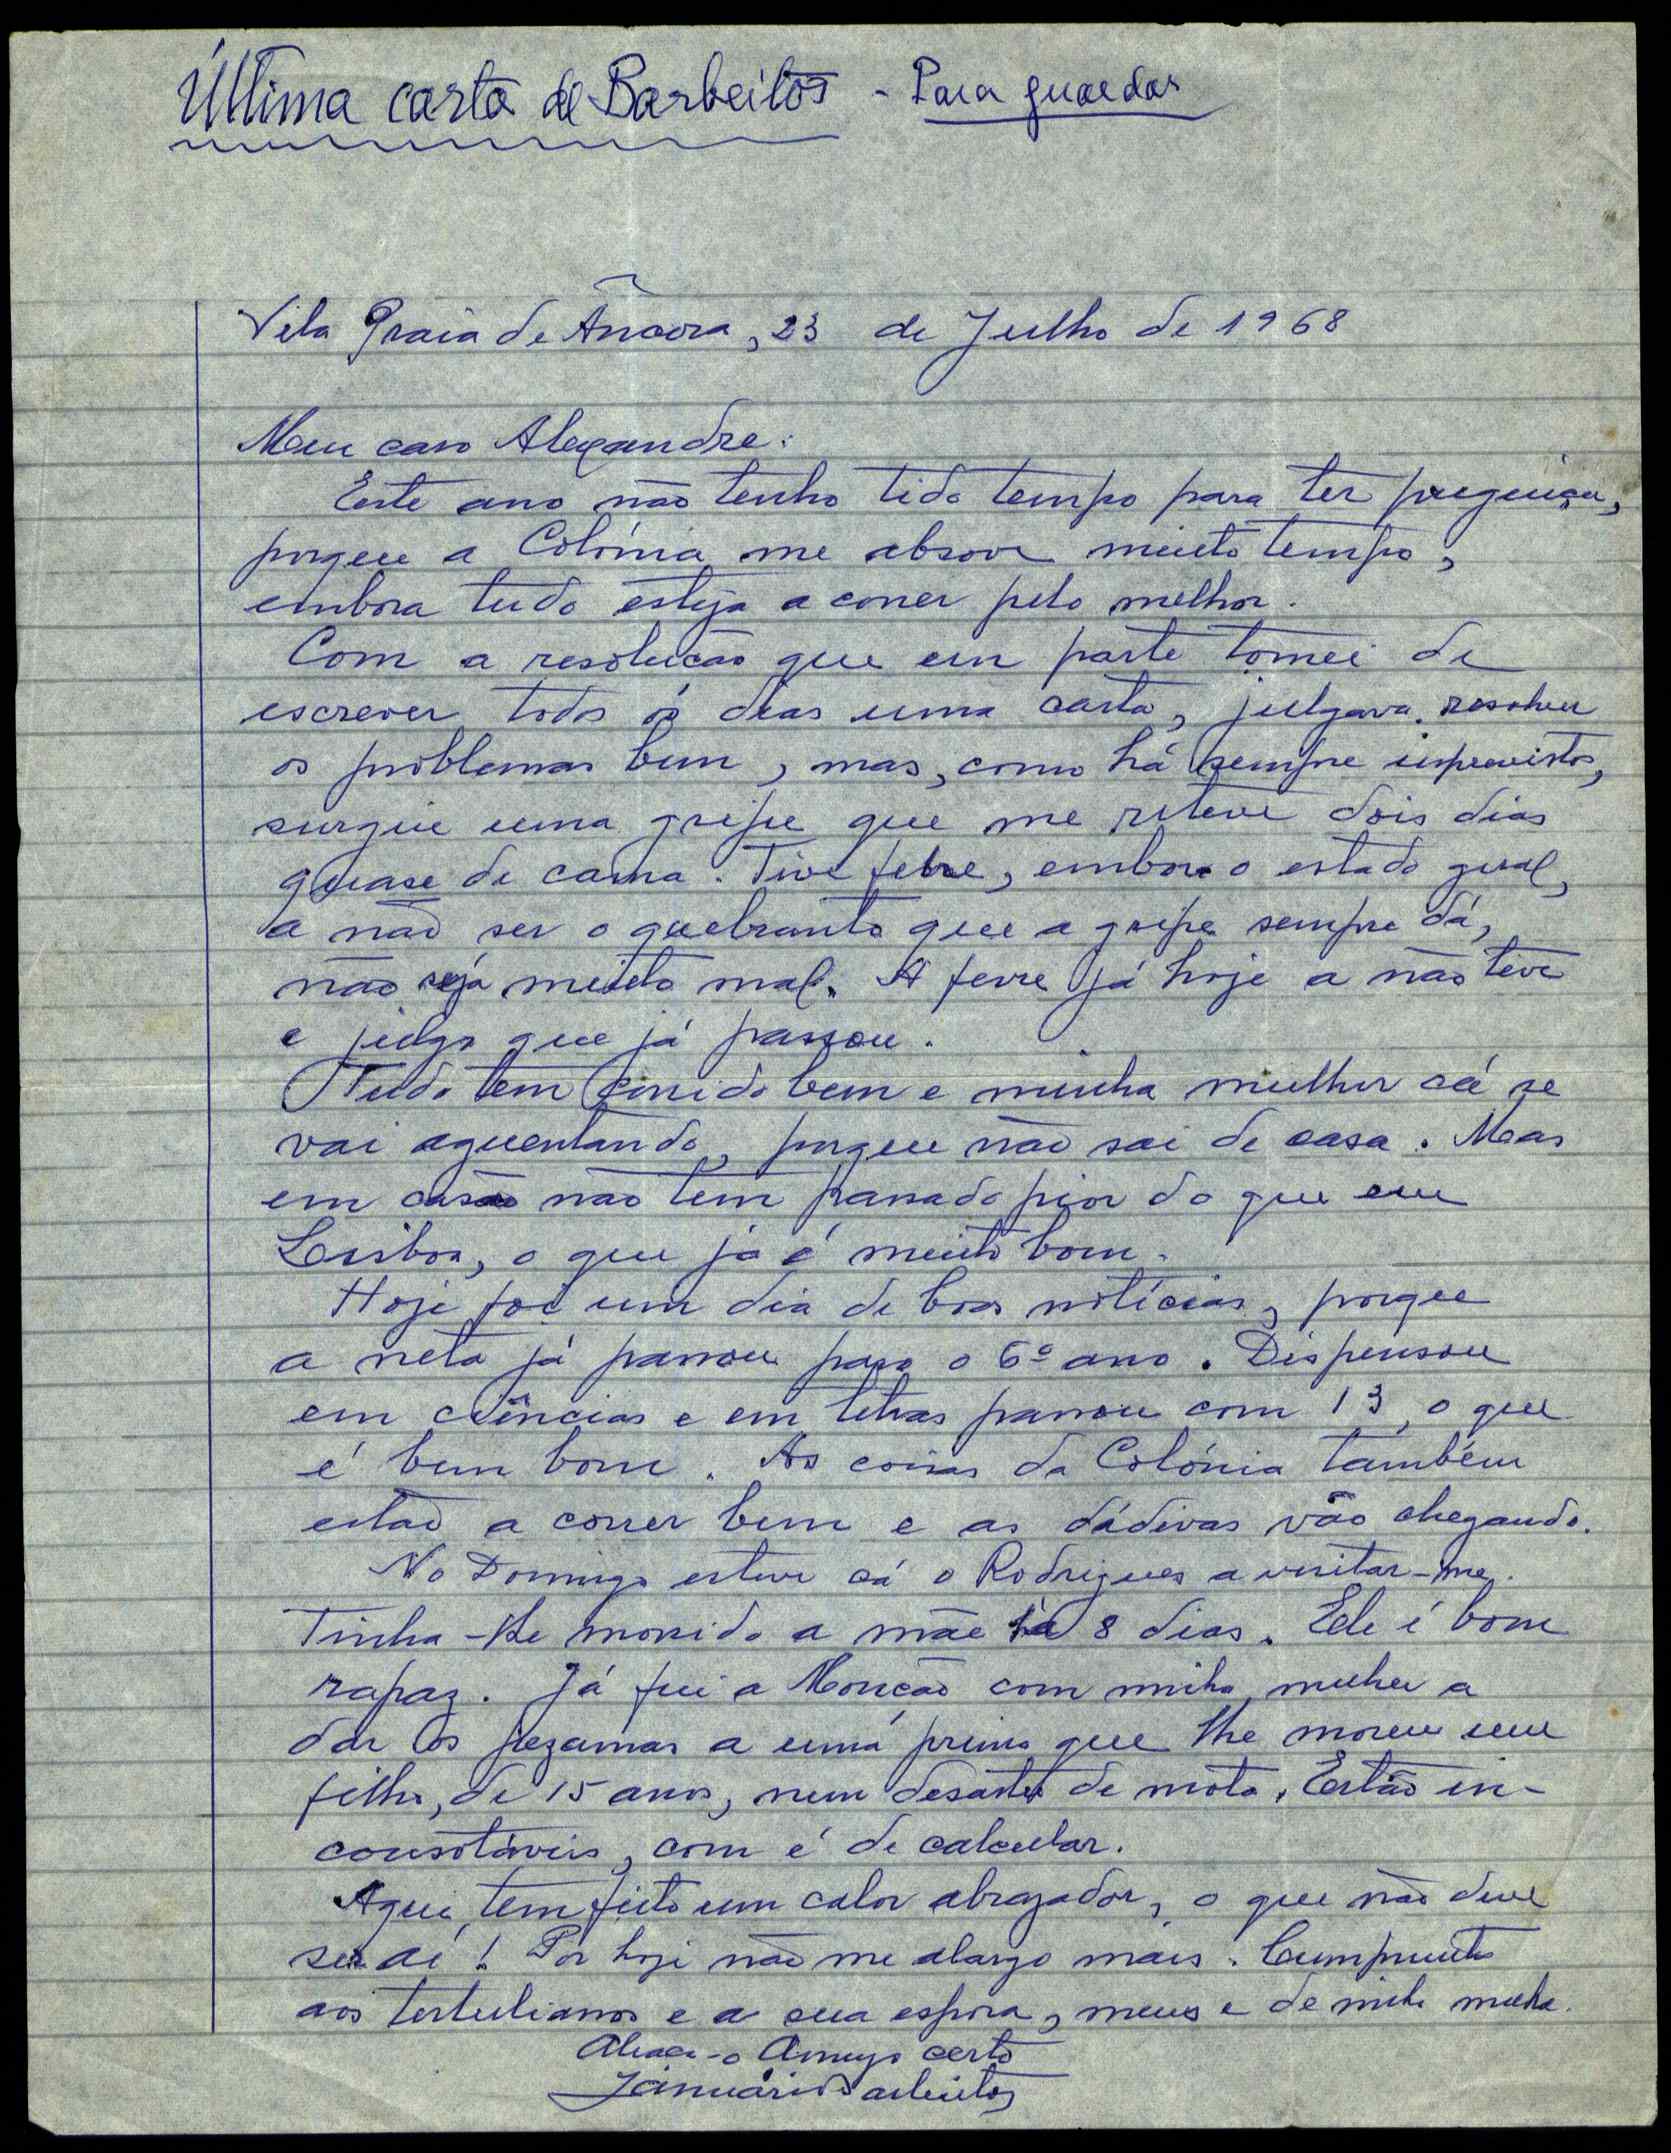 Última carta de Barbeitos - Para guardar
Vila Praia de Âncora, 23 de Julho de 1968
Meu caro Alexandre:
Este ano não tenho tido tempo para ter preguiça,
porque a Colónia me absorve muito tempo,
embora tudo esteja a correr pelo melhor.
Com a resolução que em parte tomei de
escrever todos os dias uma carta, julgava resolver
os problemas bem, mas, como há sempre imprevistos,
surgiu uma gripe que me reteve dois dias
quase de cama. Tive febre, embora o estado geral,
a não ser o quebranto que a gripe sempre dá,
não seja muito mal. A fevre já hoje a não tive
e julgo que já passou.
Tudo tem corrido bem e minha mulher cá se
vai aguentando, porque não sai de casa. Mas
em casa não tem passado pior do que em
Lisboa, o que já é muito bom.
Hoje foi um dia de boas notícias, porque
a neta já passou para o 6º ano. Dispensou
em ciências e em letras passou com 13, o que
é bem bom. As coisas da Colónia também
estão a correr bem e as dádivas vão chegando.
No Domingo esteve cá o Rodrigues a visitar-me.
Tinha-lhe morrido a mãe há 8 dias. Ele é bom
rapaz. Já fui a Monção com minha mulher a
dar os pezames a uma prima que lhe morreu um
filho, de 15 anos, num desastre de moto. Estão in-
consoláveis, com é de calcular.
Aqui tem feito um calor abrazador, o que não deve
ser aí! Por hoje não me alargo mais. Cumprimentos
aos tertulianos e a sua esposa, meus e de minha mulher.
Abraça-o Amigo certo
Januário Barbeitos